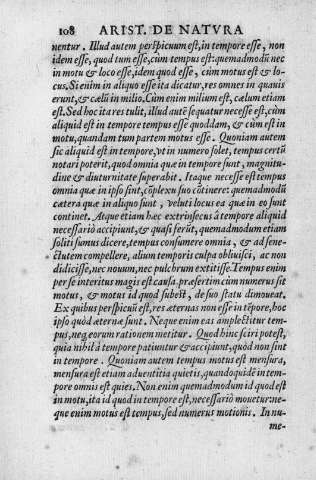 108 ARIST. DE NATVRA
nentur. Illud autem perspicuum est, in tempore esse, non
idem esse, quod tum esse, cùm tempus est: quemadmodũ nec
in motu & loco esse, idem quod esse, cùm motus est & lo-
cus. Si enim in aliquo esse ita dicatur, res omnes in quauis
erunt, & cælũ in milio. Cùm enim milium est, cælum etiam
est. Sed hoc ita res tulit, illud autẽ sequatur necesse est, cùm
aliquid est in tempore tempus esse quoddam, & cùm est in
motu, quandam tum partem motus esse. Quoniam autem
sic aliquid est in tempore, vt in numero solet, tempus certũ
notari poterit, quod omnia quæ in tempore sunt, magnitu-
dine & diuturnitate superabit. Itaque necesse est tempus
omnia quæ in ipso sint, cõplexu suo cõtinere: quemadmodũ
cætera quæ in aliquo sunt, veluti locus ea quæ in eo sunt
continet. Atque etiam hæc extrinsecus à tempore aliquid
necessariò accipiunt, & quasi ferũt, quemadmodum etiam
soliti sumus dicere, tempus consumere omnia, & ad sene-
ctutem compellere, alium temporis culpa obliuisci, ac non
didicisse, nec nouum, nec pulchrum extitisse. Tempus enim
per se interitus magis est causa. præsertim cùm numerus sit
motus, & motus id quod subest, de suo statu dimoueat.
Ex quibus perspicuũ est, res æternas non esse in tẽpore, hoc
ipso quòd æternæ sunt. Neque enim eas amplectitur tem-
pus, neq; eorum rationem metitur. Quod hinc sciri potest,
quia nihil à tempore patiuntur & accipiunt, quòd non sint
in tempore. Quoniam autem tempus motus est mensura,
mensura est etiam aduentitia quietis, quandoquidẽ in tem-
pore omnis est quies. Non enim quemadmodum id quod est
in motu, ita id quod in tempore est, necessariò mouetur: ne-
que enim motus est tempus, sed numerus motionis. In nu-
me-